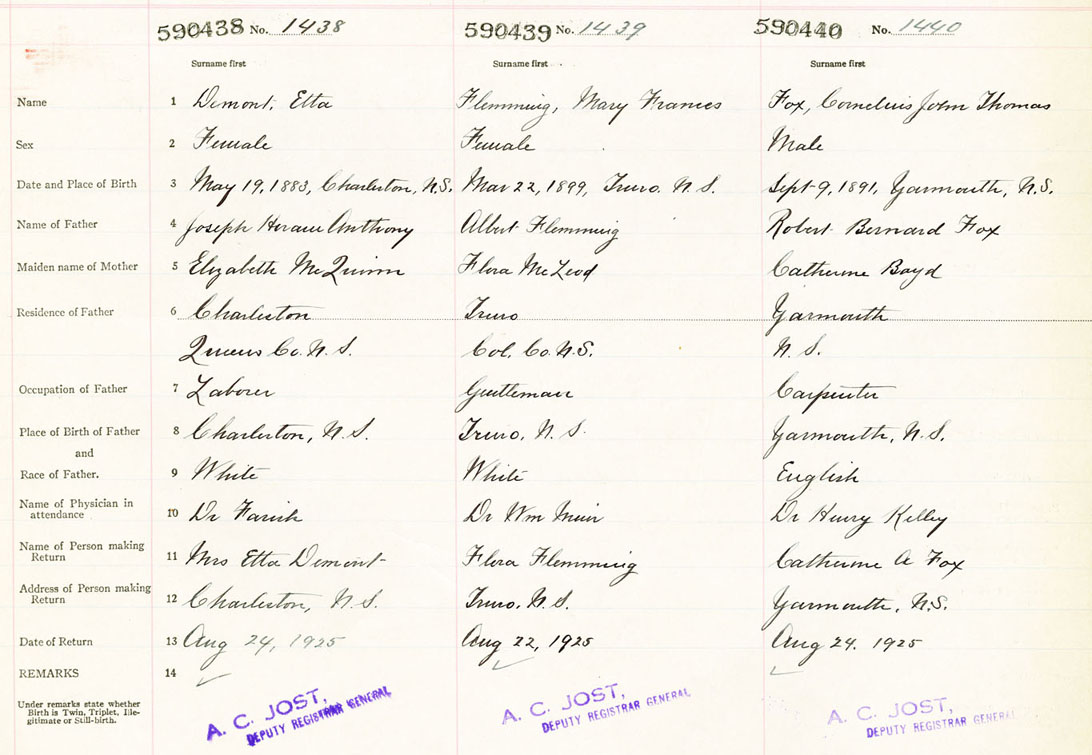 590438 No. 1438 590439 No. 1439 590440 No. 1440
Surname first Surname first Surname first
Name 1 Demont, Etta Flemming, Mary Frances Fox, Cornelius John Thomas
Sex 2 Female Female Male
Date and Place of Birth 3 May 19, 1883, Charleston, N.S. Mar 22, 1899, Truro. N.S. Sept 9, 1891, Yarmouth, N.S.
Name of Father 4 Joseph Horace Anthony Albert Flemming Robert Bernard Fox
Maiden name of Mother 5 Elizabeth McQuinn Flora McLeod Catherine Boyd
Residence of Father 6 Charleston Truro Yarmouth
Queens Co. N.S. Col. Co. N.S. N.S.
Occupation of Father 7 Laborer Gentleman Carpenter
Place of Birth of Father 8 Charleston, N.S. Truro, N.S. Yarmouth, N.S.
and
Race of Father. 9 White White English
Name of Physician in
attendance 10 Dr Farish Dr Wm Muir Dr Henry Kelley
Name of Person making
Return 11 Mrs Etta Demont Flora Flemming Catherine A Fox
Address of Person making
Return 12 Charleston, N.S. Truro, N.S. Yarmouth, N.S.
Date of Return 13 Aug 24, 1925 Aug 22, 1925 Aug 24. 1925
REMARKS 14
Under remarks state whether
Birth is Twin, Triplet, Ille-
gitimate or Still-birth.
A. C. JOST, A. C. JOST, A. C. JOST,
DEPUTY REGISTRAR GENERAL DEPUTY REGISTRAR GENERAL DEPUTY REGISTRAR GENERAL